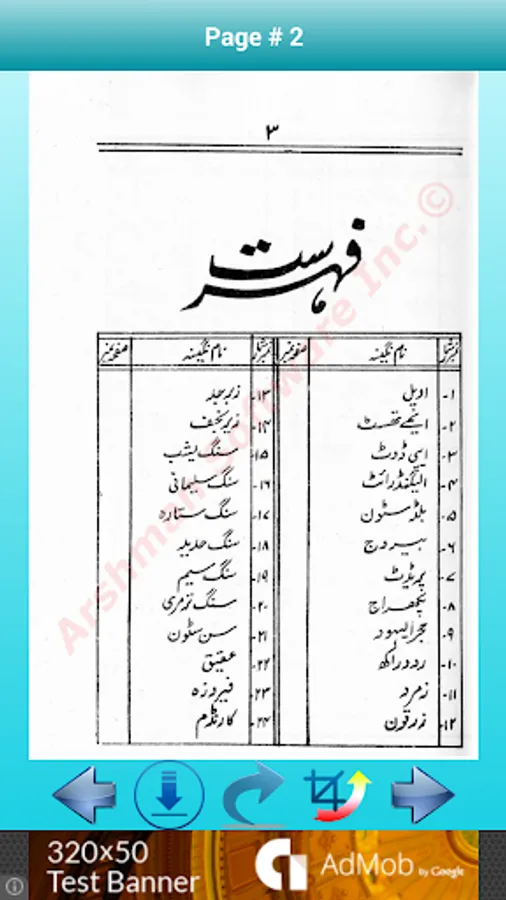 Page # 2
۳
فہرست
نمبر شمار نام نگینہ صفحہ نمبر نمبر شمار نام نگینہ صفحہ نمبر
۱- اوپل ۱۳- زبرجد
۲- ایمے تھسٹ ۱۴- نجف
۳- ایسی ڈوٹ ۱۵- سنگ یشب
۴- الیگنڈرائٹ ۱۶- سنگ سلیمانی
۵- بلڈ سٹون ۱۷- سنگ ستارہ
۶- بیروج ۱۸- سنگ حدید
۷- پریڈٹ ۱۹- سنگ سیم
۸- پکھراج ۲۰- سنگ مرمری
۹- حجرالیہود ۲۱- سن سٹون
۱۰- ردوراکھ ۲۲- عقیق
۱۱- زمرد ۲۳- فیروزہ
۱۲- زرقون ۲۴- کارنڈم
Arshman Software Inc. ©
320×50
Test Banner
AdMob by Google